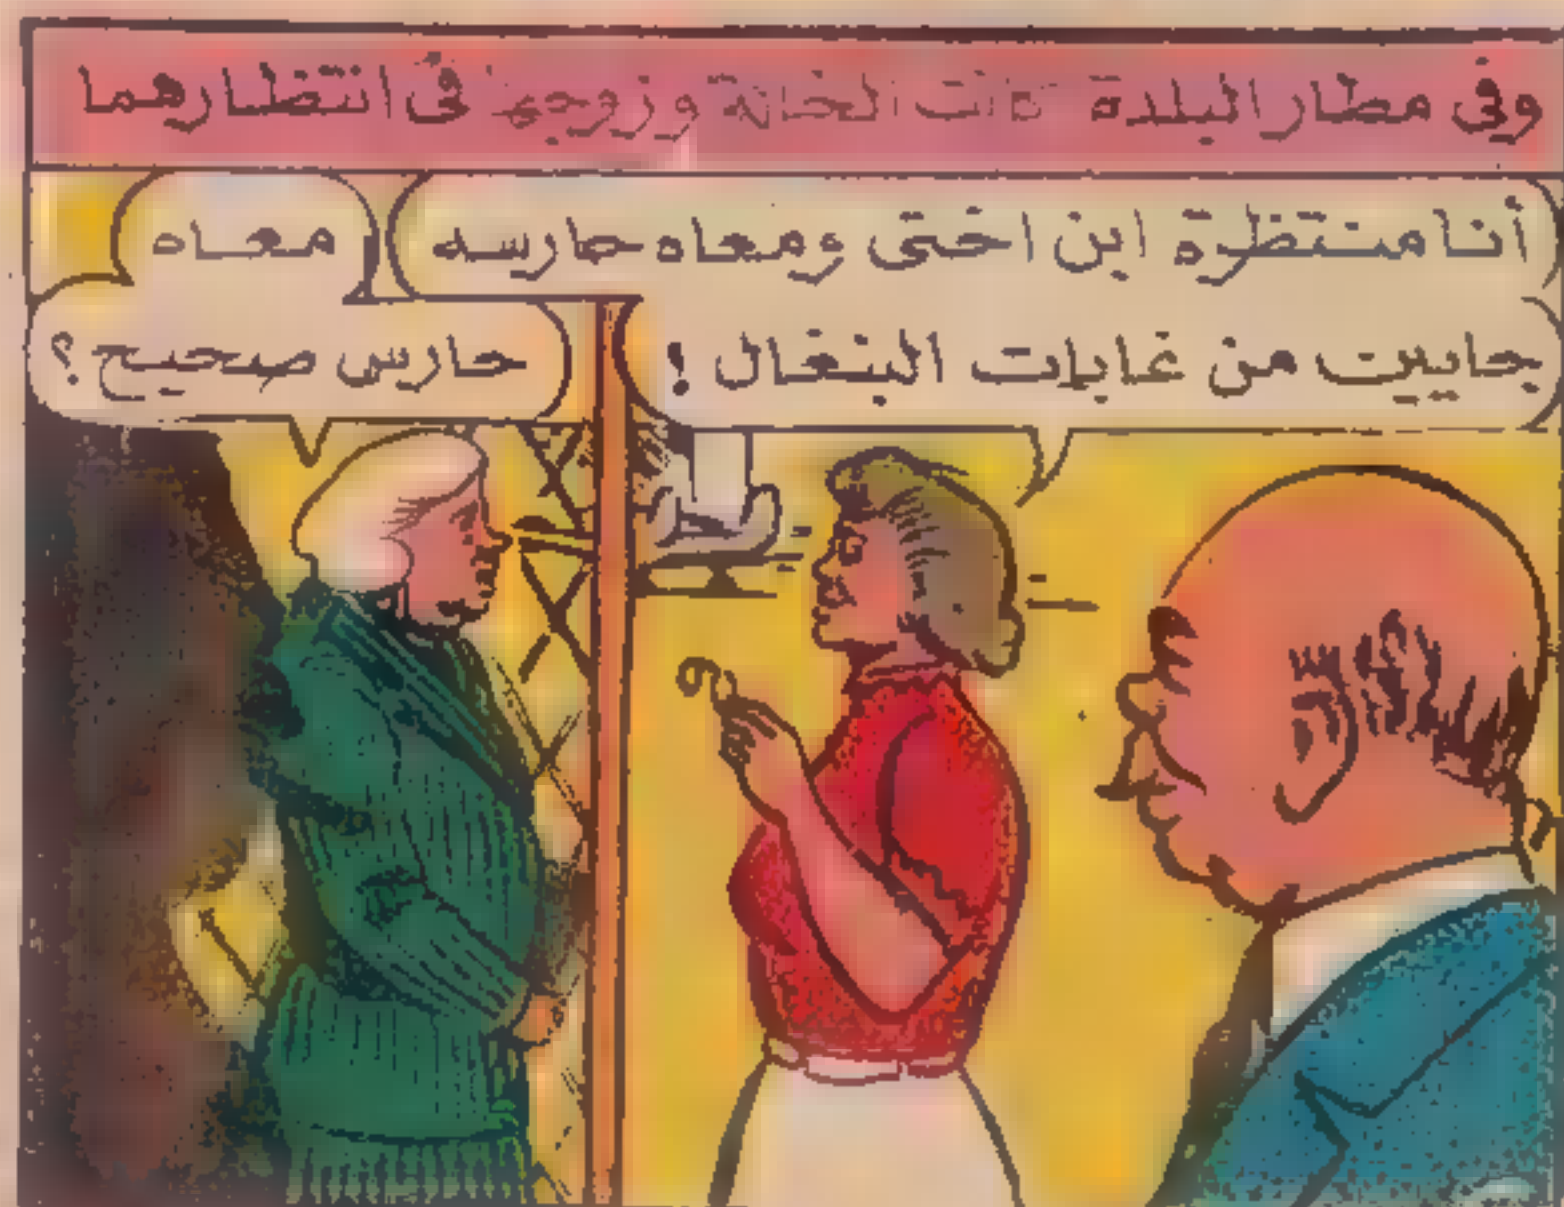 وفى مطار البلدة كانت الخالة وزوجها فى انتظارهما
أنا منتظرة ابن اختى ومعاه حارسه
جايين من غابات البنغال !
معاه
حارس صحيح ؟